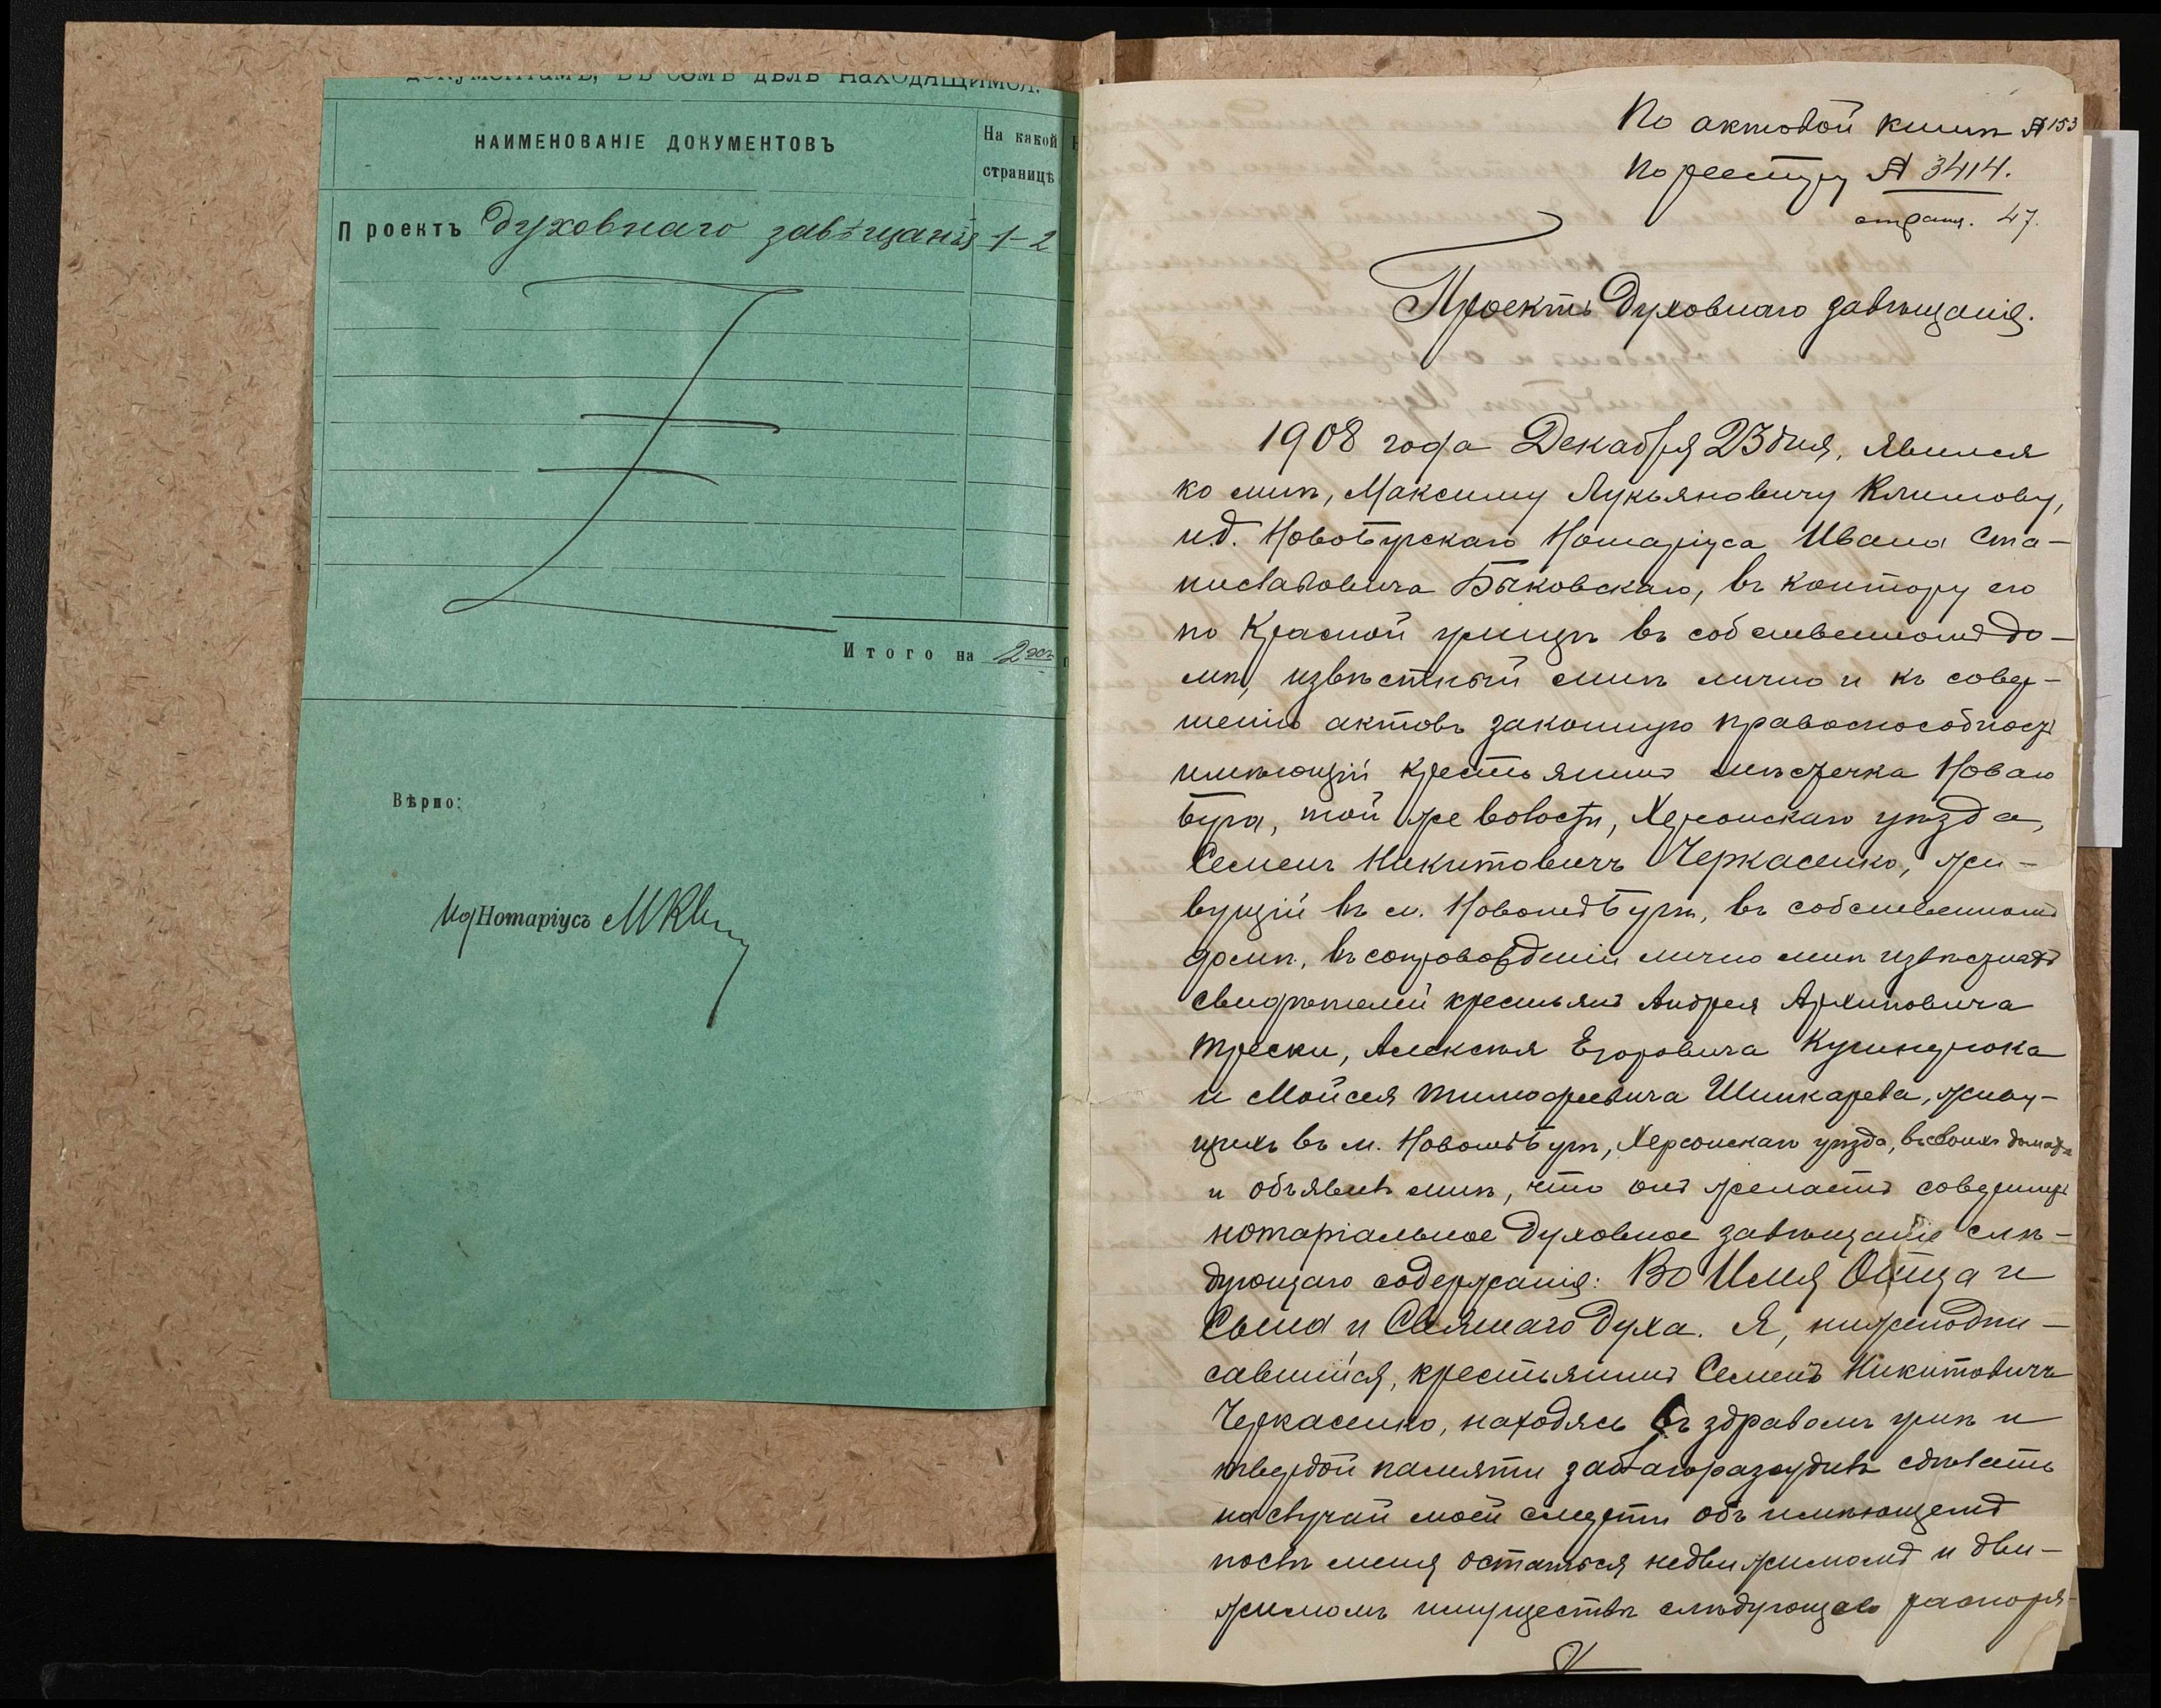 документамъ, въ семъ дѣлѣ находящимся.
НАИМЕНОВАНІЕ ДОКУМЕНТОВЪ
На какой
страницѣ
Проектъ духовнаго завѣщанія 1-2
Итого на 2хъ
Вѣрно:
Ид Нотаріусъ
По актовой книгѣ № 153
По реестру № 3414.
стран. 47.
Проектъ духовнаго завѣщанія.
1908 года Декабря 23 дня, явился
ко мнѣ, Максиму Лукьяновичу Климову,
и.д. Новобугскаго Нотаріуса Ивана Ста-
ниславовича Быковскаго, въ контору его
по Красной улицѣ въ собственномъ до-
мѣ, извѣстный мнѣ лично и къ совер-
шенію актовъ законную правоспособность
имѣющій крестьянинъ мѣстечка Новаго
Буга, той же волости, Херсонскаго уѣзда,
Семенъ Никитовичъ Черкасенко, жи-
вущій въ м. Новомъ Бугѣ, въ собственномъ
домѣ, въ сопровожденіи лично мнѣ извѣстныхъ
свидѣтелей крестьянъ Андрея Архиповича
Трески, Алексѣя Егоровича
и Мойсея Тимофеевича Шинкарева, живу-
щихъ въ м. Новомъ Бугѣ, Херсонскаго уѣзда, въ своихъ домахъ
и объявилъ мнѣ, что онъ желаетъ совершить
нотаріальное духовное завѣщаніе слѣ-
дующаго содержанія: Во Имя Отца и
Сына и Святаго Духа. Я, нижеподпи-
савшійся, крестьянинъ Семенъ Никитовичъ
Черкасенко, находясь въ здравомъ умѣ и
твердой памяти заблагоразсудилъ сдѣлать
на случай моей смерти объ имѣющемъ
послѣ меня остаться недвижимомъ и дви-
жимомъ имуществѣ слѣдующее распоря-